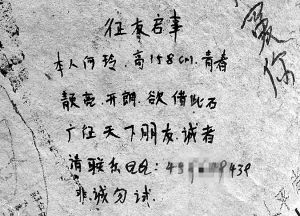 征友启事
本人何玲.高158cm.青春
靓亮.开朗.欲借此石
广征天下朋友.诚者
请联系QQ:49 439
非诚勿试.
爱你